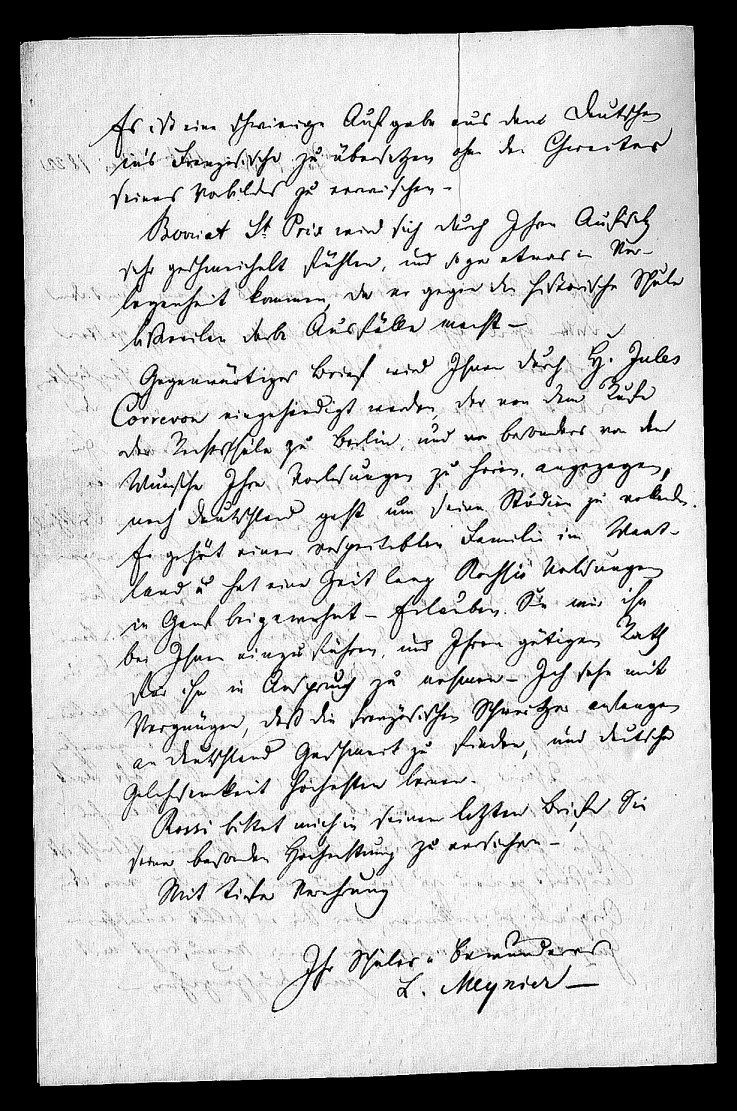 Es ist eine schwierige Aufgabe aus dem Deutschen
in's Französische zu übersetzen ohne den Charakter
seines Vorbildes zu verwischen –
Berriat St Prix wird sich durch Ihren Aufsatz
sehr geschmeichelt fühlen, und sogar etwas in Ver-
legenheit kommen, da er gegen die historische Schule
bisweilen derbe Ausfälle macht –
Gegenwärtiger Brief wird Ihnen durch H. Jules
Correvon eingehändigt werden, der von dem Rufe
der Rechtsschule zu Berlin, und besonders von dem
Wunsche Ihre Vorlesungen zu hören, angezogen,
nach Deutschland geht um seine Studien zu vollenden.
Er gehört einer Familie im Waat-
land u hat eine Zeit lang Rossis Vorlesungen
in Genf beigewohnt – Erlauben Sie mir ihn
bei Ihnen einzuführen, und Ihren gütigen Rath
für ihn in Anspruch zu nehmen – Ich sehe mit
Vergnügen, daß die französischen Schweitzer anfangen
an Deutschland Geschmack zu finden, und deutsche
Gelehrsamkeit hochachten lernen.
Rossi bittet mich in seinem letzten Briefe, Sie
seiner besonderen Hochachtung zu versichern –
Mit tiefer Verehrung
Ihr Schüler u Bewunderer
L. Meynier –